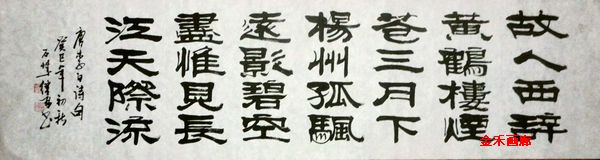 故人西辭
黃鶴樓煙
花三月下
楊州孤颿
遠影碧空
盡惟見長
江天際流
唐李白詩句
癸巳年初秋
金禾画廊